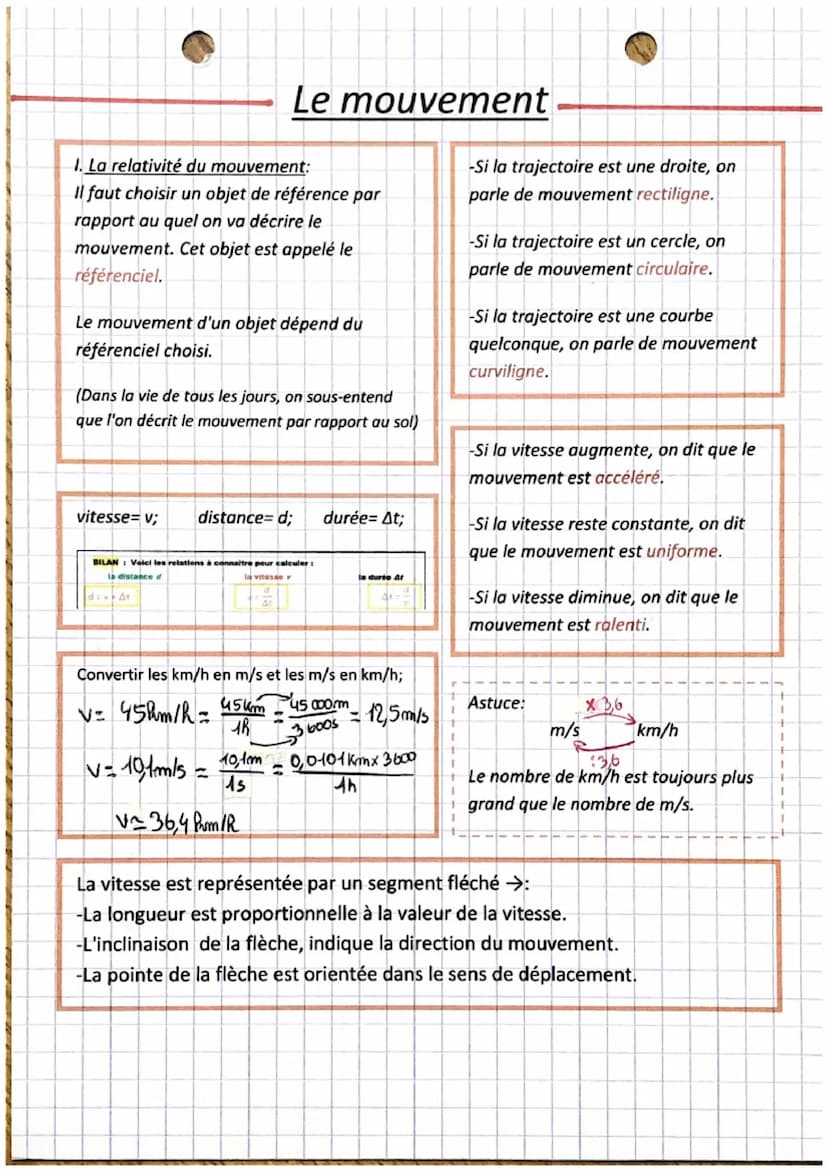 Le mouvement
I. La relativité du mouvement:
Il faut choisir un objet de référence par
rapport au quel on va décrire le
mouvement. Cet objet est appelé le
référenciel.
Le mouvement d'un objet dépend du
référenciel choisi.
(Dans la vie de tous les jours, on sous-entend
que l'on décrit le mouvement par rapport au sol)
-Si la trajectoire est une droite, on
parle de mouvement rectiligne.
-Si la trajectoire est un cercle, on
parle de mouvement circulaire.
-Si la trajectoire est une courbe
quelconque, on parle de mouvement
curviligne.
-Si la vitesse augmente, on dit que le
mouvement est accéléré.
-Si la vitesse reste constante, on dit
que le mouvement est uniforme.
-Si la vitesse diminue, on dit que le
mouvement est ralenti.
vitesse= v; distance= d; durée= Δt;
BILAN : Voici les relations à connaitre pour calculer :
la distance d la vitesse v la durée Δt
d = v × Δt v = d/Δt Δt = d/v
Convertir les km/h en m/s et les m/s en km/h;
v= 45km/h = 45km/1h = 45 000m/3600s = 12,5m/s
v= 10,1m/s = 10,1m/1s = 0,0101Km x 3600/1h
v≃36,4 km/h
Astuce: x 3,6
m/s km/h
:3,6
Le nombre de km/h est toujours plus
grand que le nombre de m/s.
La vitesse est représentée par un segment fléché →:
-La longueur est proportionnelle à la valeur de la vitesse.
-L'inclinaison de la flèche, indique la direction du mouvement.
-La pointe de la flèche est orientée dans le sens de déplacement.